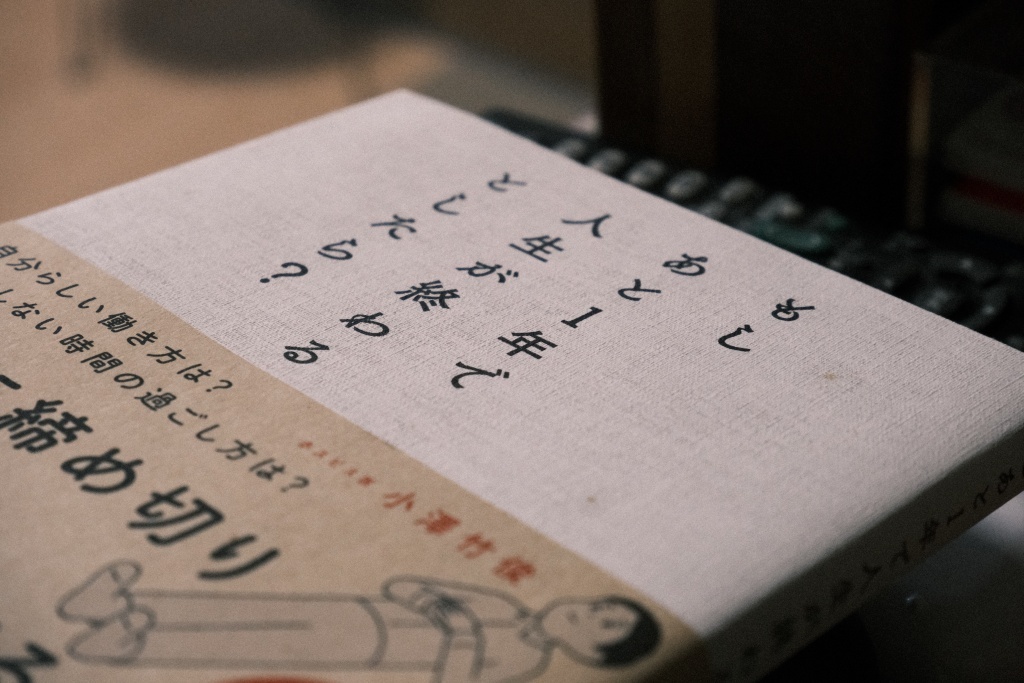 もし
あと1年で
人生が終わる
としたら？
自分らしい働き方は？
しない時間の過ごし方は？
締め切り
小澤竹俊
あと1年で人生が終わ